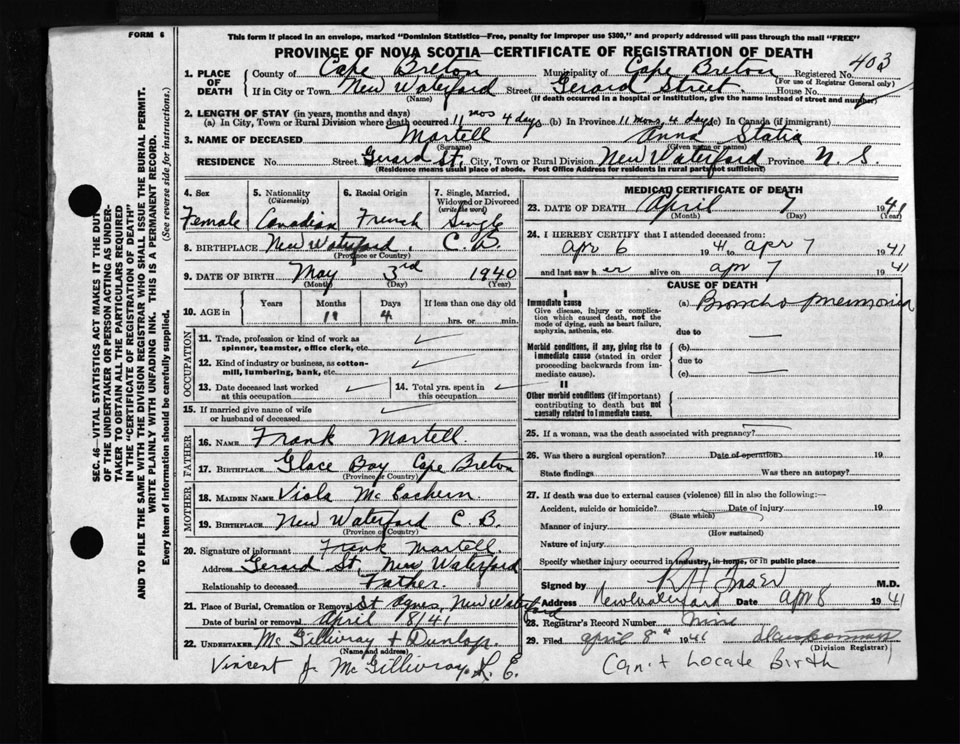 FORM 6
This form if placed in an envelope, marked "Dominion Statistics—Free, penalty for improper use $300," and properly addressed will pass through the mail "FREE"
PROVINCE OF NOVA SCOTIA—CERTIFICATE OF REGISTRATION OF DEATH
403
1. PLACE OF DEATH
County of Cape Breton Municipality of Cape Breton Registered No.
(For use of Registrar General only)
If in City or Town New Waterford Street Gerard Street House No.
(Name) (If death occurred in a hospital or institution, give the name instead of street and number)
2. LENGTH OF STAY (in years, months and days)
(a) In City, Town or Rural Division where death occurred 11 mos 4 days (b) In Province 11 mons, 4 days (c) In Canada (if immigrant)
3. NAME OF DECEASED Martell Anna Statia
(Surname) (Given name or names)
RESIDENCE No. Street Gerard St. City, Town or Rural Division New Waterford Province N. S.
(Residence means usual place of abode. Post Office Address for residents in rural parts not sufficient)
4. Sex
Female
5. Nationality
(Citizenship)
Canadian
6. Racial Origin
French
7. Single, Married, Widowed or Divorced
(write the word)
Single
8. BIRTHPLACE New Waterford, C. B.
(Province or Country)
9. DATE OF BIRTH May 3rd 1940
(Month) (Day) (Year)
10. AGE in
Years
Months
11
Days
4
If less than one day old
hrs. or min.
OCCUPATION
11. Trade, profession or kind of work as spinner, teamster, office clerk, etc.
12. Kind of industry or business, as cotton-mill, lumbering, bank, etc.
13. Date deceased last worked at this occupation
14. Total yrs. spent in this occupation
15. If married give name of wife or husband of deceased
FATHER
16. NAME Frank Martell.
17. BIRTHPLACE Glace Bay Cape Breton
(Province or Country)
MOTHER
18. MAIDEN NAME Viola McEachern.
19. BIRTHPLACE New Waterford C. B.
(Province or Country)
20. Signature of informant Frank Martell
Address Gerard St, New Waterford
Relationship to deceased Father.
21. Place of Burial, Cremation or Removal St Agnes, New Waterford
Date of burial or removal April 8/41
22. UNDERTAKER McGillivray + Dunlop.
(Name and address)
Vincent J. McGillivray. L. E.
MEDICAL CERTIFICATE OF DEATH
23. DATE OF DEATH April 7 1941
(Month) (Day) (Year)
24. I HEREBY CERTIFY that I attended deceased from:
Apr 6 1941 to apr 7 1941
and last saw her alive on apr 7 1941
CAUSE OF DEATH
I
Immediate cause
Give disease, injury or complication which caused death, not the mode of dying, such as heart failure, asphyxia, asthenia, etc.
(a) Broncho pneumonia
due to
Morbid conditions, if any, giving rise to immediate cause (stated in order proceeding backwards from immediate cause).
(b)
due to
(c)
II
Other morbid conditions (if important) contributing to death but not causally related to immediate cause.
25. If a woman, was the death associated with pregnancy?
26. Was there a surgical operation? Date of operation 19
State findings Was there an autopsy?
27. If death was due to external causes (violence) fill in also the following:—
Accident, suicide or homicide? Date of injury 19
(State which)
Manner of injury
(How sustained)
Nature of injury
Specify whether injury occurred in industry, in home, or in public place
Signed by R H Fraser M.D.
Address New Waterford Date Apr 8 1941
28. Registrar's Record Number nine
29. Filed april 8th 1941
(Division Registrar)
Can't Locate Birth
SEC. 46—VITAL STATISTICS ACT MAKES IT THE DUTY OF THE UNDERTAKER OR PERSON ACTING AS UNDERTAKER TO OBTAIN ALL THE PARTICULARS REQUIRED IN THE "CERTIFICATE OF REGISTRATION OF DEATH" AND TO FILE THE SAME WITH THE DIVISION REGISTRAR WHO SHALL ISSUE THE BURIAL PERMIT.
WRITE PLAINLY WITH UNFADING INK. THIS IS A PERMANENT RECORD.
Every item of information should be carefully supplied. (See reverse side for instructions.)